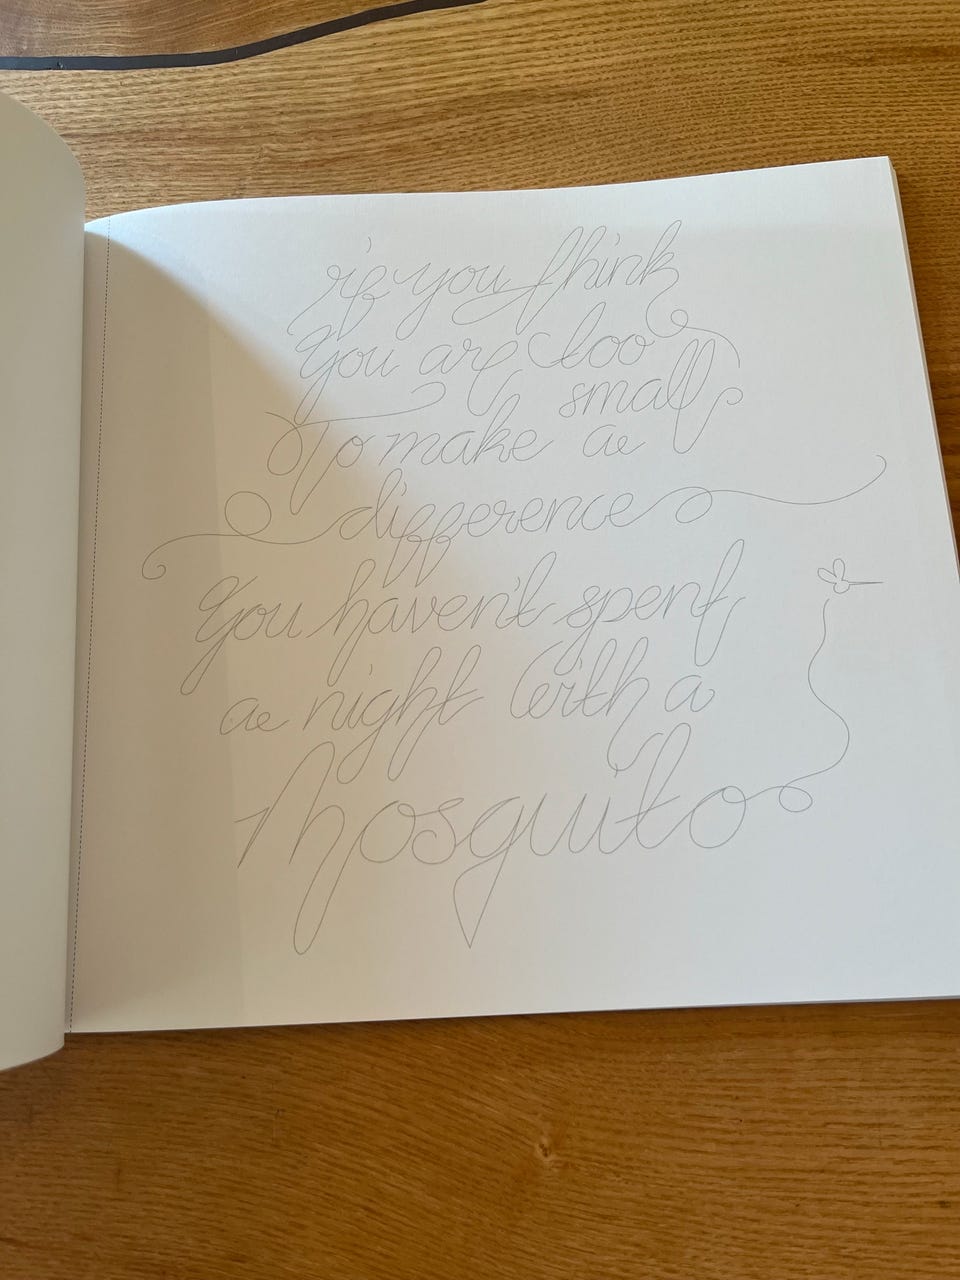 if you think
you are too
small
To make a
difference
You haven't spent
a night with a
Mosquito